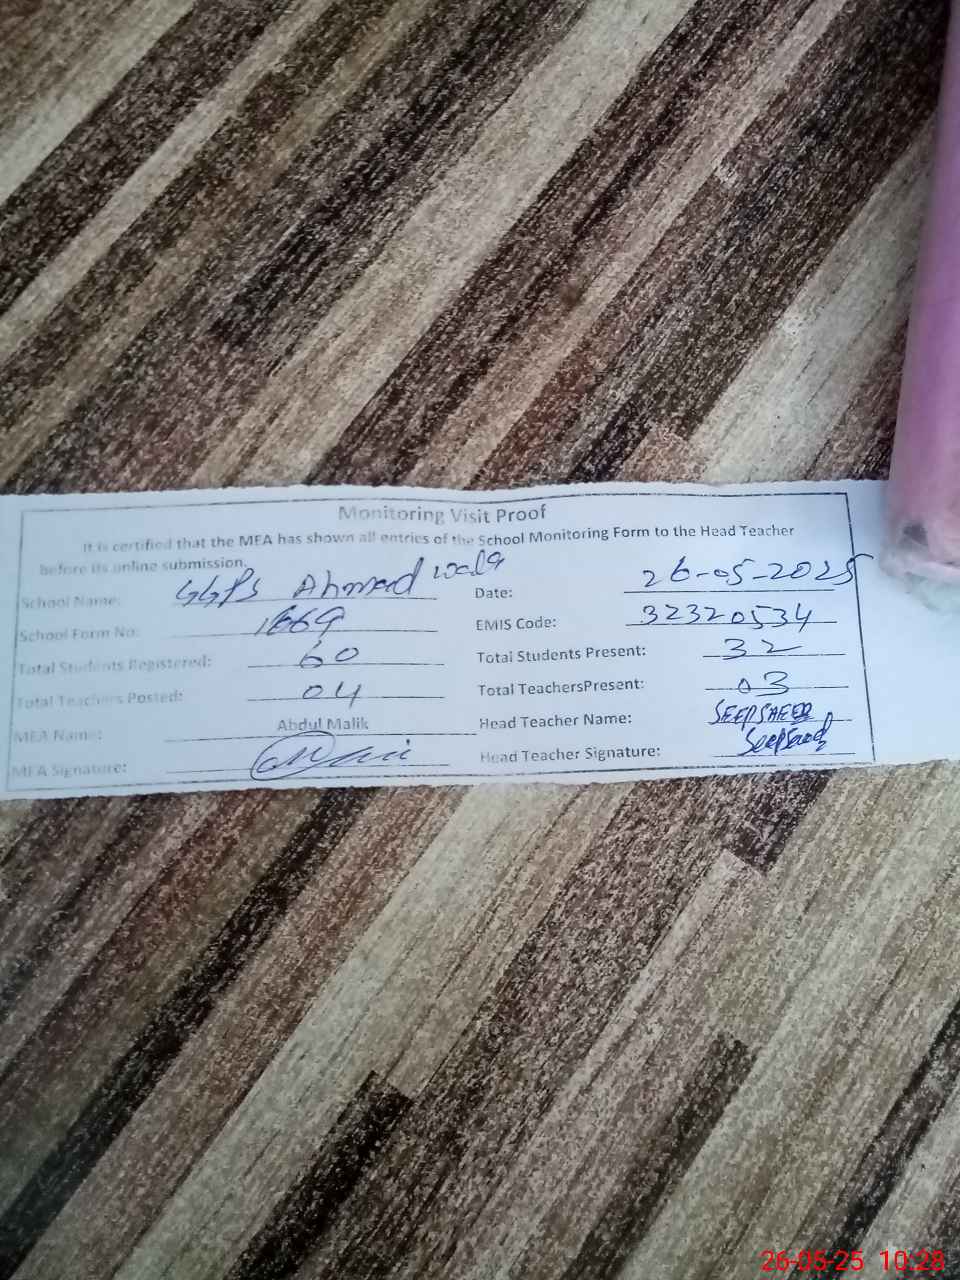 Monitoring Visit Proof
It is certified that the MEA has shown all entries of the School Monitoring Form to the Head Teacher
before its online submission.
School Name: GGPS Ahmad wala Date: 26-05-2025
School Form No: 1669 EMIS Code: 32320534
Total Students Registered: 60 Total Students Present: 32
Total Teachers Posted: 04 Total TeachersPresent: 03
MEA Name: Abdul Malik Head Teacher Name:
MEA Signature: Head Teacher Signature:
26-05-25 10:28